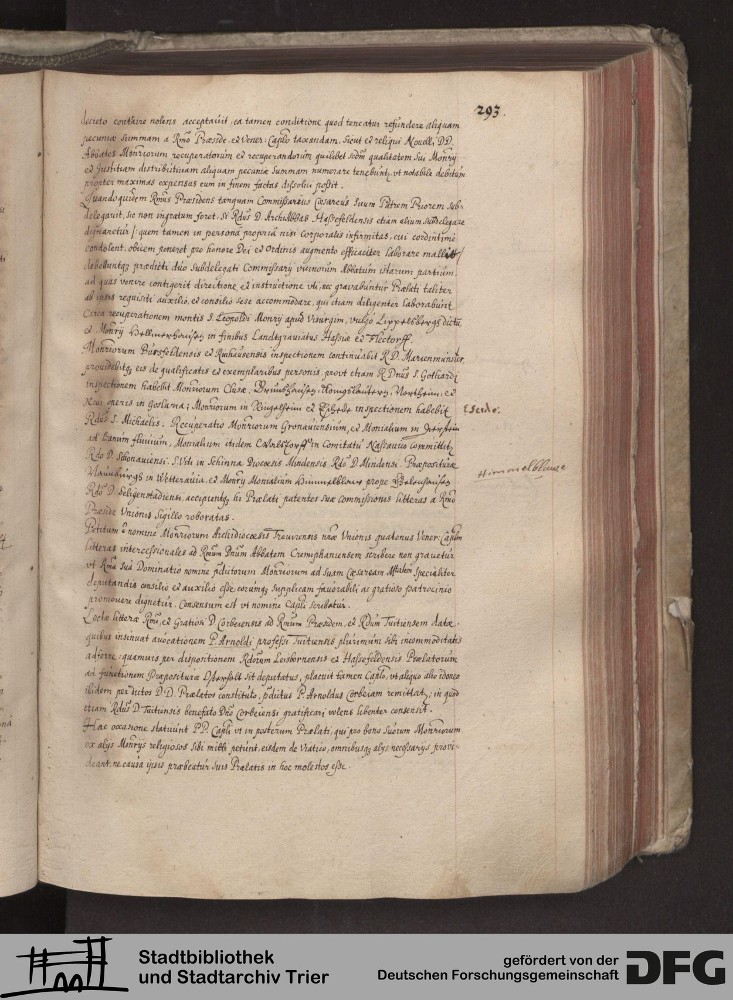 293.
decreto contraire nolens acceptauit, ea tamen conditione quod teneatur refundere aliquam
pecuniæ summam a Rmo Præside, et Vener: Caplo taxandam, sicut et reliqui Nouelli DD.
Abbates Monriorum recuperatorum et recuperandorum quilibet scdm qualitatem sui Monry
et Justitiam distributiuam aliquam pecuniæ summam numerare tenebunt, vt notabile debitum
propter maximas expensas eum in finem factas dissolui possit.
Quandoquidem Rmus Præsidens tanquam Commissarius Cæsareus suum Patrem Priorem sub-
delegauit, sic non ingratum foret, si Rdus D. ArchiAbbas Hasfeldensis etiam alium subdelegare
dignaretur /: quem tamen in persona propria nisi Corporalis infirmitas, cui cordintimè
condolent, obicem poneret pro honore Dei et Ordinis augmento efficaciter laborare mallent /
debebuntq prædicti duo subdelegati Commissarij vicinorum Abbatum istarum partium,
ad quas venire contigerit directione et instructione vti, nec grauabuntur Prælati taliter
ab ipsis requisiti auxilio, et consilio sese accommodare, qui etiam diligenter laborabunt
Circa recuperationem montis S. Leopoldi Monry apud Visurgim, vulgò Lippelsbergs dictu,
et Monry Hellmershausen in finibus Landtgrauiatus Hassiæ et Flectorff.
Monriorum Bursfeldensis et Reinhusensis inspectionem continuabit R.D. Marienmunster,
prouidebitq eis de qualificatis et exemplaribus personis, prout etiam R.Dnus S. Gothardi
inspectionem habebit Monriorum Clusæ, Brunshausen, Konigslautern, Northeim, et
Noui operis in Goslaria; Monriorum in Ringelheim et Escherde inspectionem habebit
Rdus S. Michaelis. Recuperatio Monriorum Gronauiensium, et Monialium in
ad Lanum fluuium, Monialium itidem in Comitatu Nassauico committitr
Rdo D. Schonauiensi. S. Viti in Schinna Diocæsis Mindensis Rdo D. Mindensi. Præpositura
Naumburgs in Wetterauia, et Monry Monialium Himmelblawe prope Gelenhausen
Rdo D. Seligenstadiensi, accipientq hi Prælati patentes suæ commissionis litteras a Rmo
Præside Vnionis sigillo roboratas.
Petitum è nomine Monriorum Archidiocæsis Treuirensis nræ Vnionis quatenus Vener: Caplm
litteras intercessionales ad Rmum Dnum Abbatem Cremiphaniensem scribere non grauetur
vt Rma sua Dominatio nomine pdictorum Monriorum ad suam Cæsaream Mtatem specialiter
deputandis consilio et auxilio esse eorumq supplicam fauorabili ac gratioso patrocinio
promouere dignetur. Consensum est vt nomine Capli scribatur.
Lectæ litteræ Rmi, et Gratiosi D. Corbeiensis ad Rmum Præsidem, et Rdum Tuitiensem datæ
quibus insinuat auocationem P. Arnoldi professi Tuitiensis plurimùm sibi incommoditatis
adferre: quamuis per dispositionem Rdorum Leisbornensis et Hassefeldensis Prælatorum
ad functionem Præposituræ sit deputatus, placuit tamen Caplo, vt aliquo alio idoneo
ibidem per dictos D.D. Prælatos constituto, pdictus P. Arnoldus Corbeiam remittatr; in quod
etiam Rdus D. Tuitiensis benefato Dno Corbeiensi gratificari volens libenter consensit.
Hac occasione statuunt P.P. Capli vt in posterum Prælati, qui pro bono suorum Monriorum
ex alijs Monrijs religiosos sibi mitti petunt, eisdem de Viatico, omnibusq alijs necessarijs proui-
deant, ne causa ipsis præbeatur suis Prælatis in hoc molestos esse.
Escerde.
Himmelblawe
Stadtbibliothek
und Stadtarchiv Trier
gefördert von der
Deutschen Forschungsgemeinschaft
DFG